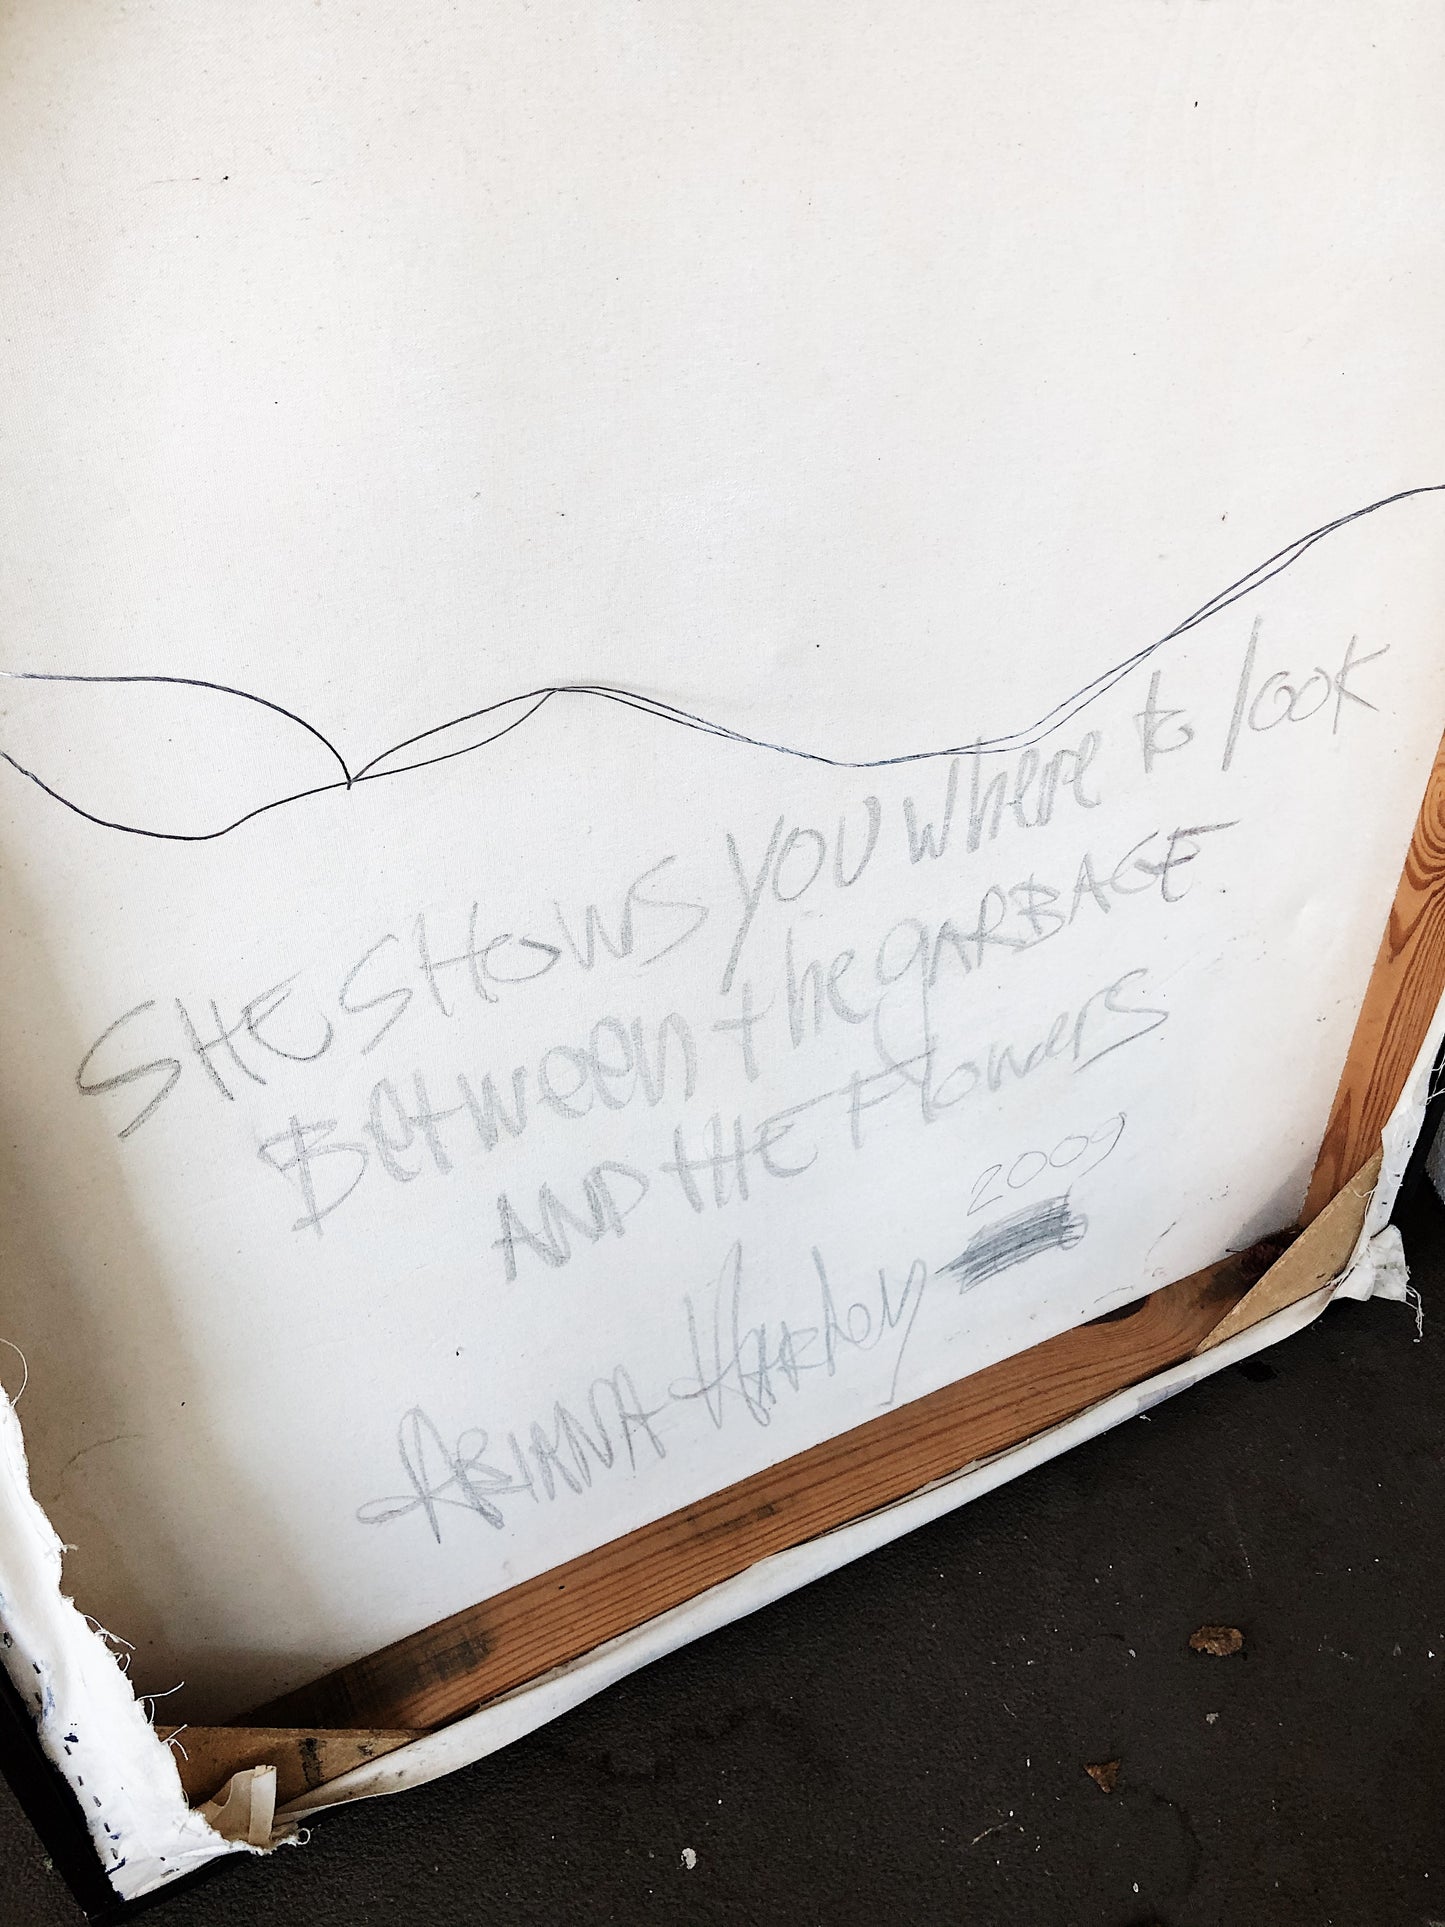 SHE SHOWS YOU where to look
BetWeen the GARBAGE
AND tHE Flowers
2009
ARIANA Harley